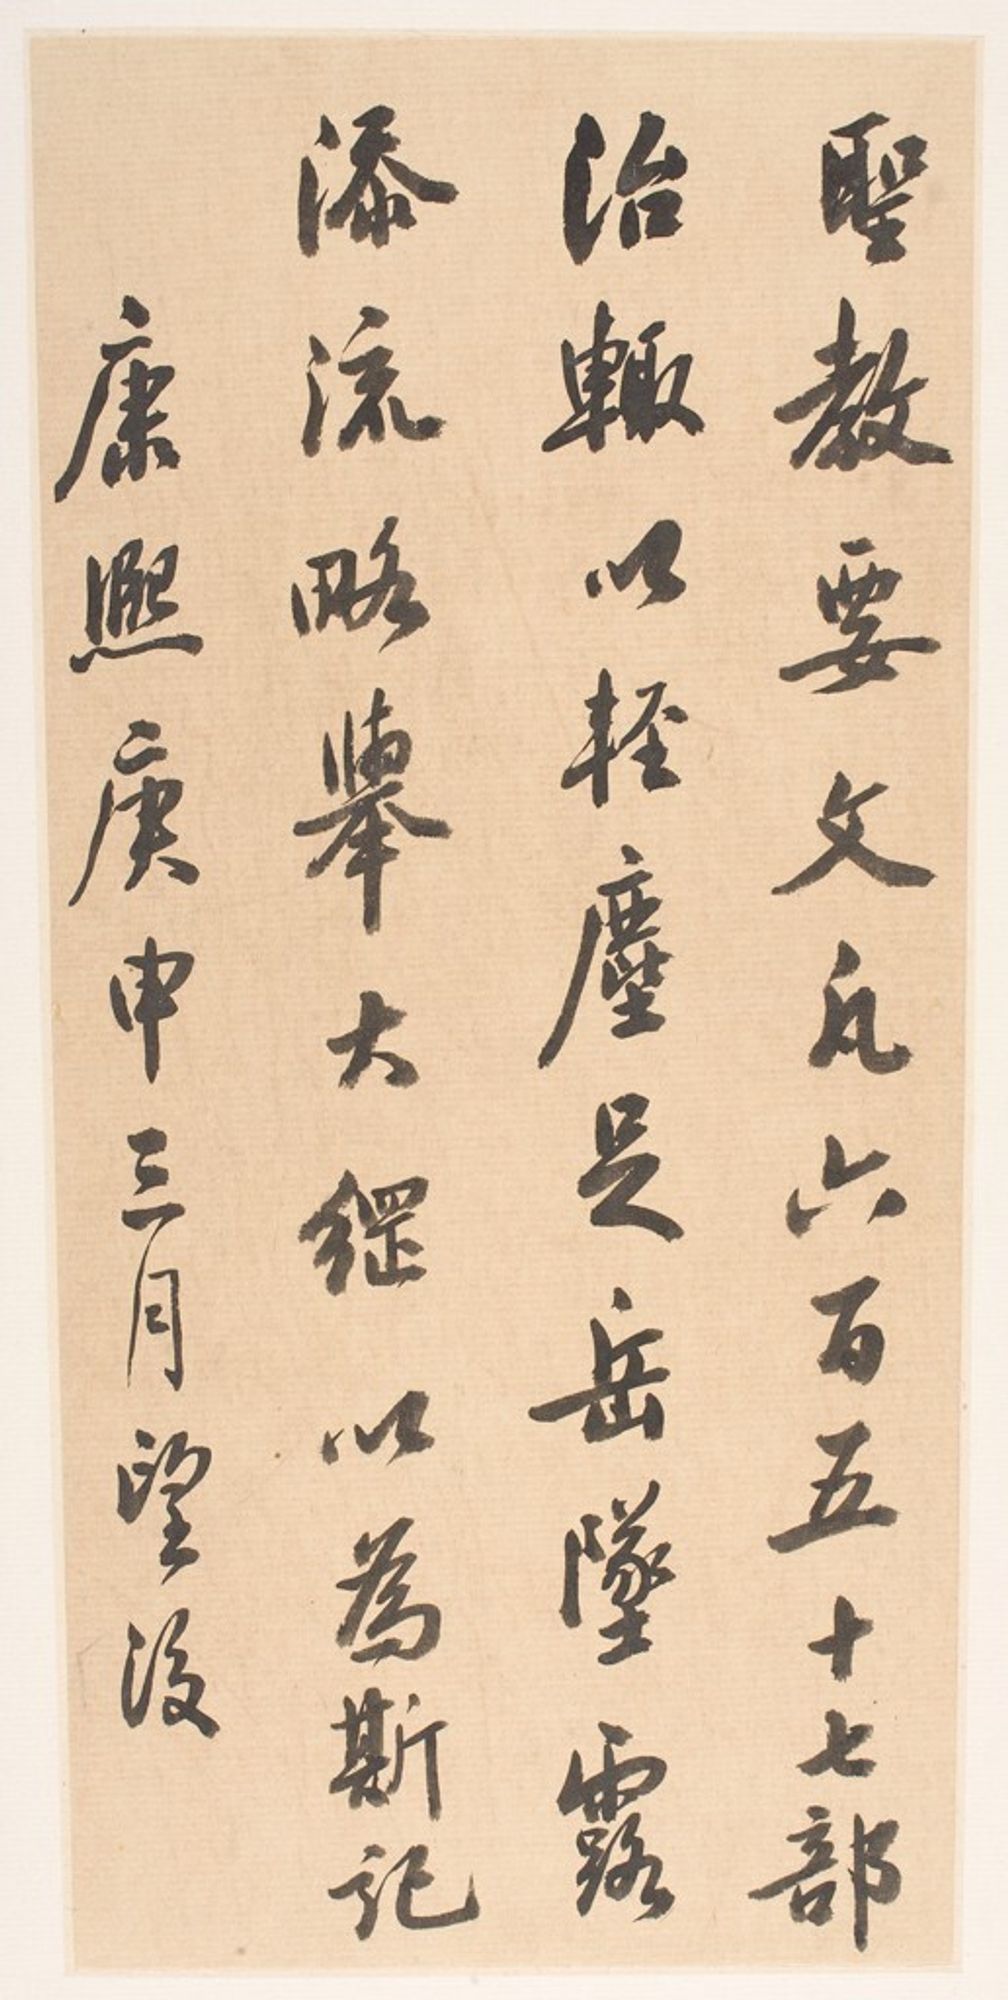 聖教要文凡六百五十七部
治輙以輕塵足岳墜露
添流略舉大綱以為斯記
康熙庚申三月望後